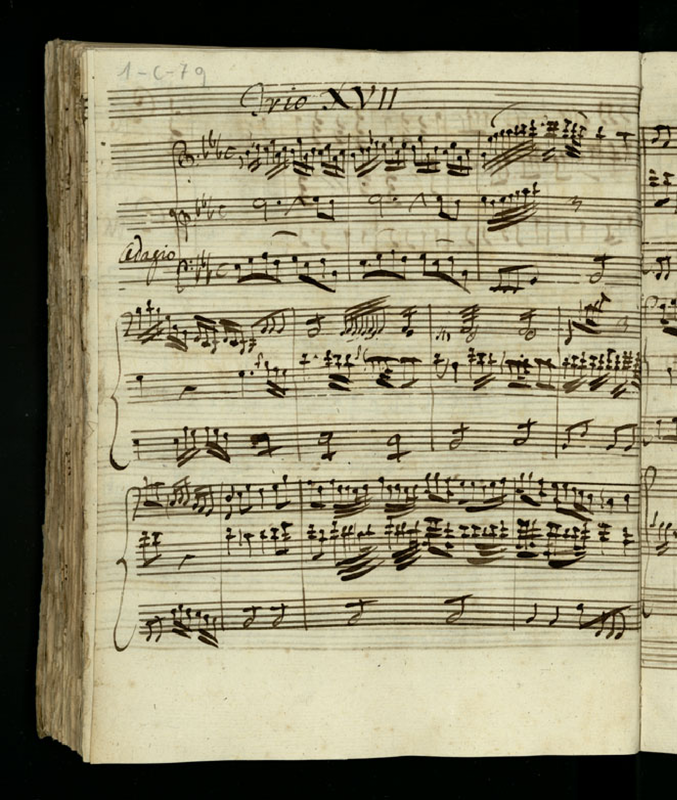 1-C-79
Trio XVII
Adagio